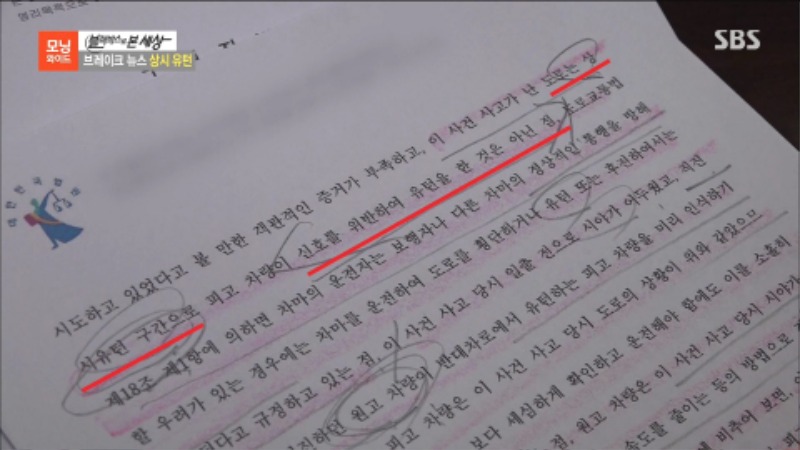 모닝
와이드
블랙박스로 본 세상
브레이크 뉴스 상시 유턴
SBS
대한민국 법원
시도하고 있었다고 볼 만한 객관적인 증거가 부족하고, 이 사건 사고가 난 도로는 상
시유턴 구간으로 피고 차량이 신호를 위반하여 유턴을 한 것은 아닌 점 도로교통법
제18조 제1항에 의하면 차마의 운전자는 보행자나 다른 차마의 정상적인 통행을 방해
할 우려가 있는 경우에는 차마를 운전하여 도로를 횡단하거나 유턴 또는 후진하여서는
된다고 규정하고 있는 점, 이 사건 사고 당시 일출 전으로 시야가 어두웠고, 직진
진행하던 원고 차량의 반대차로에서 유턴하는 피고 차량을 미리 인식하기
피고 차량은 이 사건 사고 당시 도로의 상황이 위와 같았으므
보다 세심하게 확인하고 운전해야 함에도 이를 소홀히
점, 원고 차량은 이 사건 사고 당시 시야가
속도를 줄이는 등의 방법으로
에 비추어 보면, 이